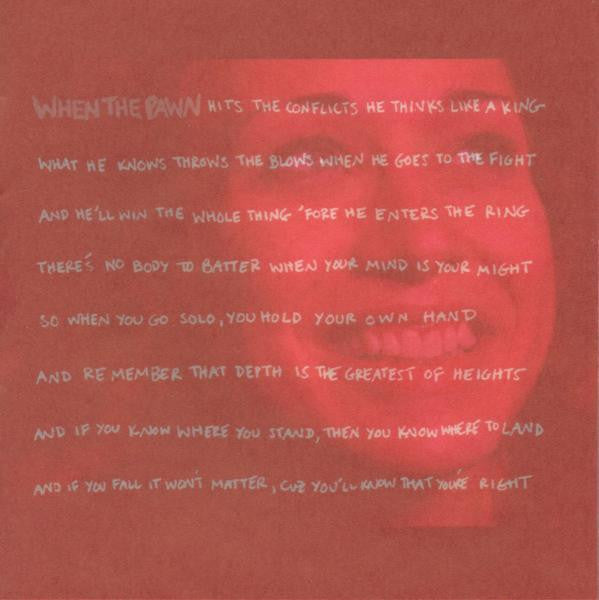 WHEN THE PAWN HITS THE CONFLICTS HE THINKS LIKE A KING
WHAT HE KNOWS THROWS THE BLOWS WHEN HE GOES TO THE FIGHT
AND HE'LL WIN THE WHOLE THING 'FORE HE ENTERS THE RING
THERE'S NO BODY TO BATTER WHEN YOUR MIND IS YOUR MIGHT
SO WHEN YOU GO SOLO, YOU HOLD YOUR OWN HAND
AND REMEMBER THAT DEPTH IS THE GREATEST OF HEIGHTS
AND IF YOU KNOW WHERE YOU STAND, THEN YOU KNOW WHERE TO LAND
AND IF YOU FALL IT WON'T MATTER, CUZ YOU'LL KNOW THAT YOU'RE RIGHT